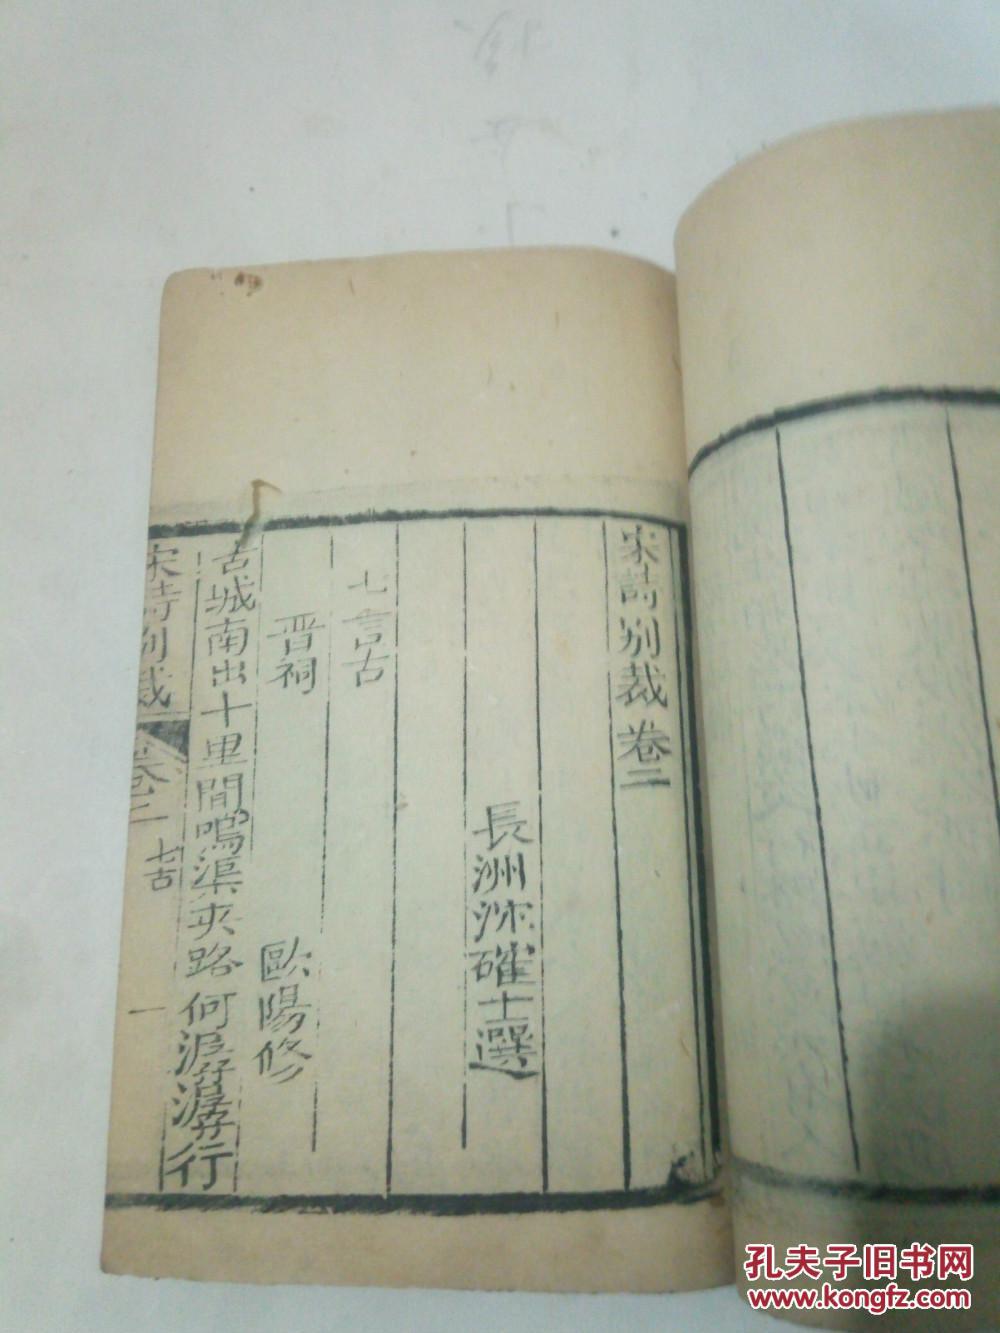 宋詩別裁卷二
長洲沈確士選
七言古
晋祠
歐陽修
古城南出十里間鳴渠夾路何潺潺行
宋詩別裁
卷二
七古
一
孔夫子旧书网
www.kongfz.com